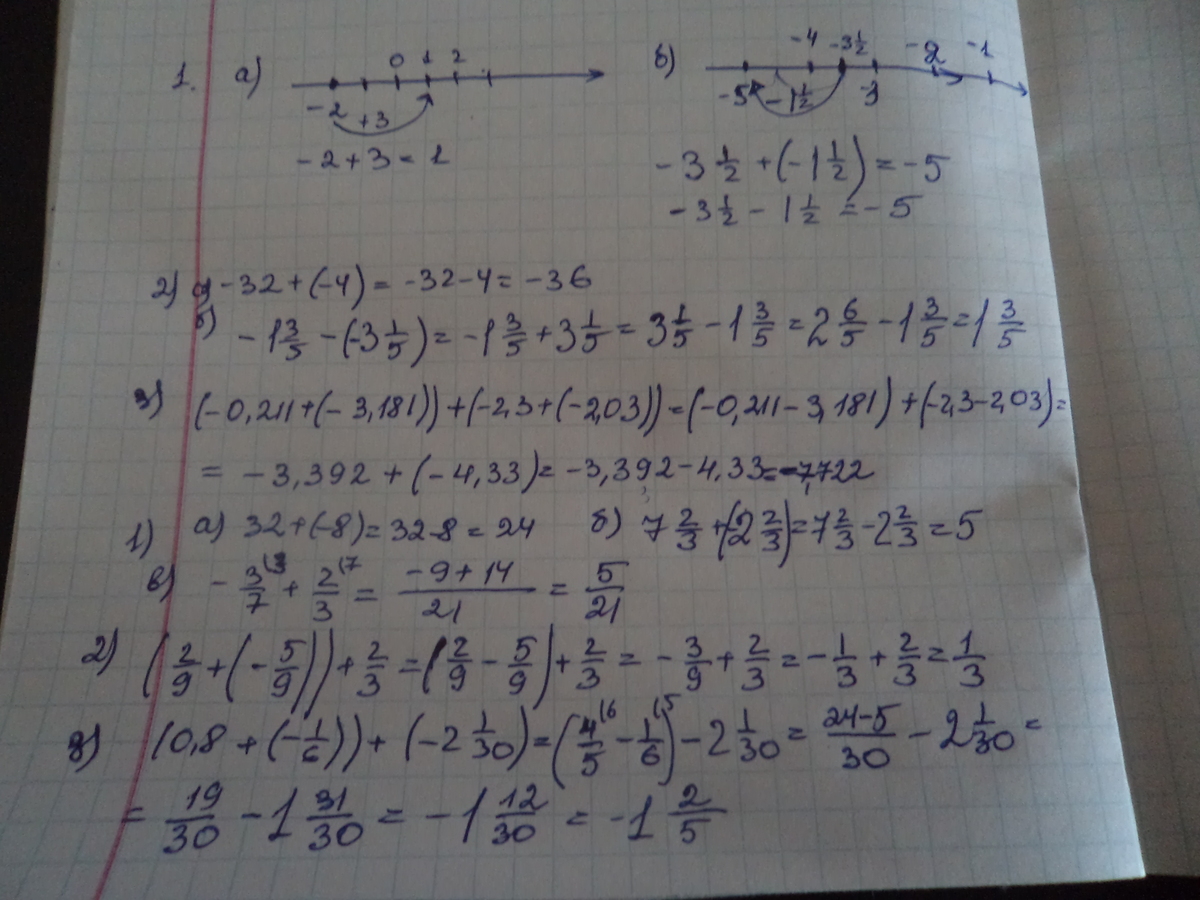 1. а) 0 1 2
-2 +3
-2+3=1
б) -4 -3 1/2 -2 -1
-5 -1 1/2 -3
-3 1/2 + (-1 1/2) = -5
-3 1/2 - 1 1/2 = -5
2) а) -32+(-4) = -32-4 = -36
б) -1 3/5 - (-3 1/5) = -1 3/5 + 3 1/5 = 3 1/5 - 1 3/5 = 2 6/5 - 1 3/5 = 1 3/5
3) (-0,211+(-3,181))+(-2,3+(-2,03)) = (-0,211-3,181)+(-2,3-2,03) =
= -3,392+(-4,33) = -3,392-4,33 = -7,722
1) а) 32+(-8) = 32-8 = 24 б) 7 2/3 + (-2 2/3) = 7 2/3 - 2 2/3 = 5
в) -3/7 (3 + 2/3 (7 = (-9+14)/21 = 5/21
2) (2/9+(-5/9))+2/3 = (2/9-5/9)+2/3 = -3/9+2/3 = -1/3+2/3 = 1/3
3) (0,8+(-1/6))+(-2 1/30) = (4/5 (6 - 1/6 (5) - 2 1/30 = (24-5)/30 - 2 1/30 =
= 19/30 - 1 31/30 = -1 12/30 = -1 2/5